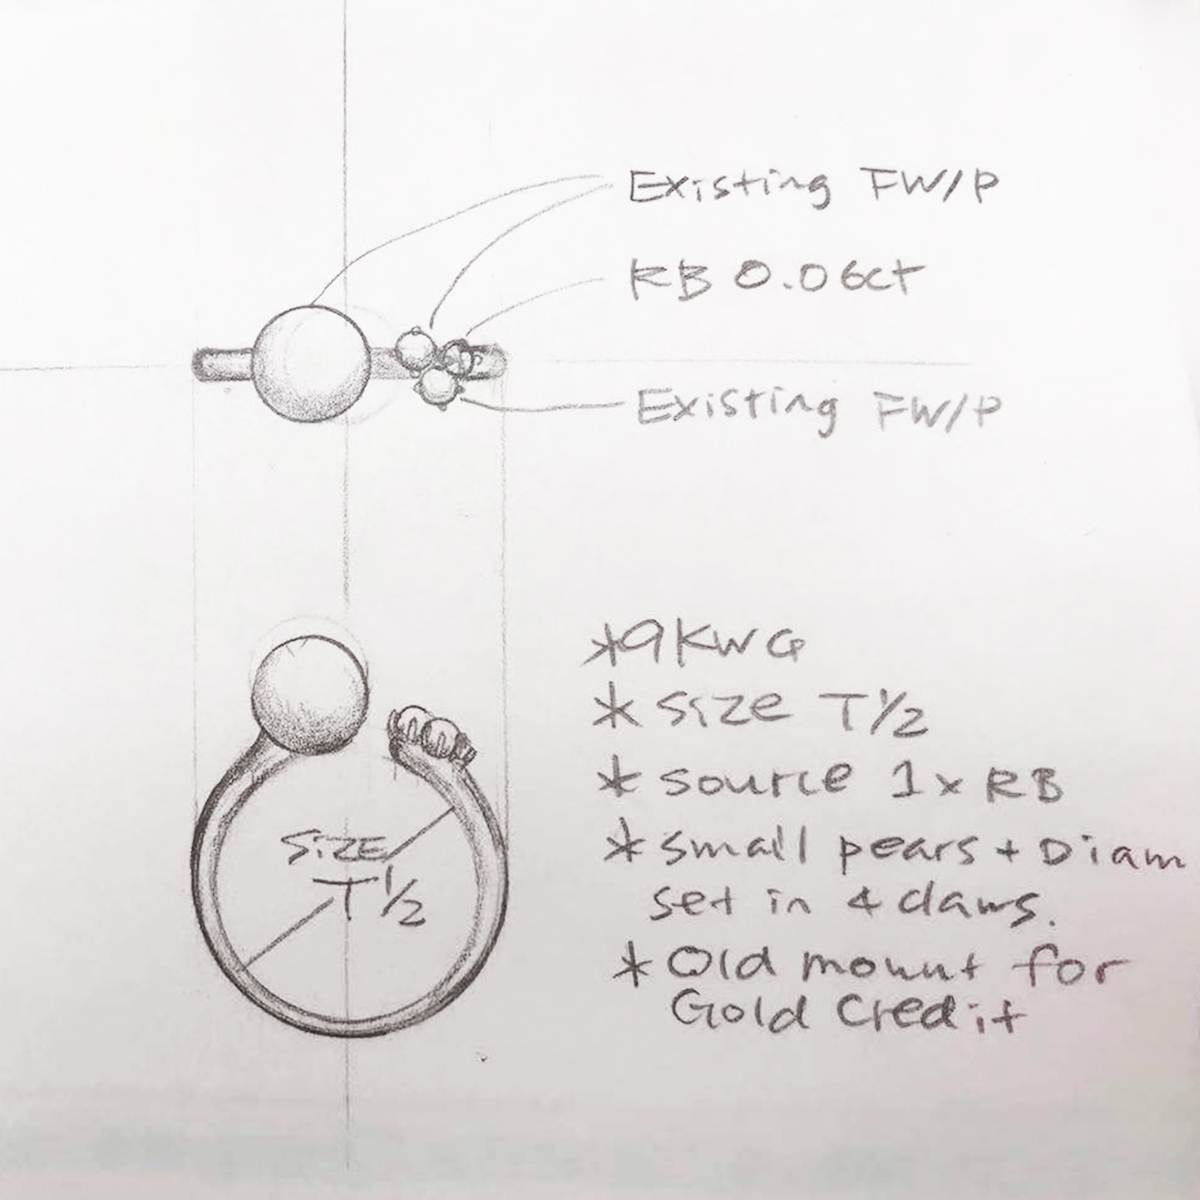 Existing FW/P
RB 0.06ct
Existing FW/P
*9KWG
* Size T½
* source 1x RB
* small pears + Diam
set in 4 claws.
* Old mount for
Gold Credit
SIZE
T½